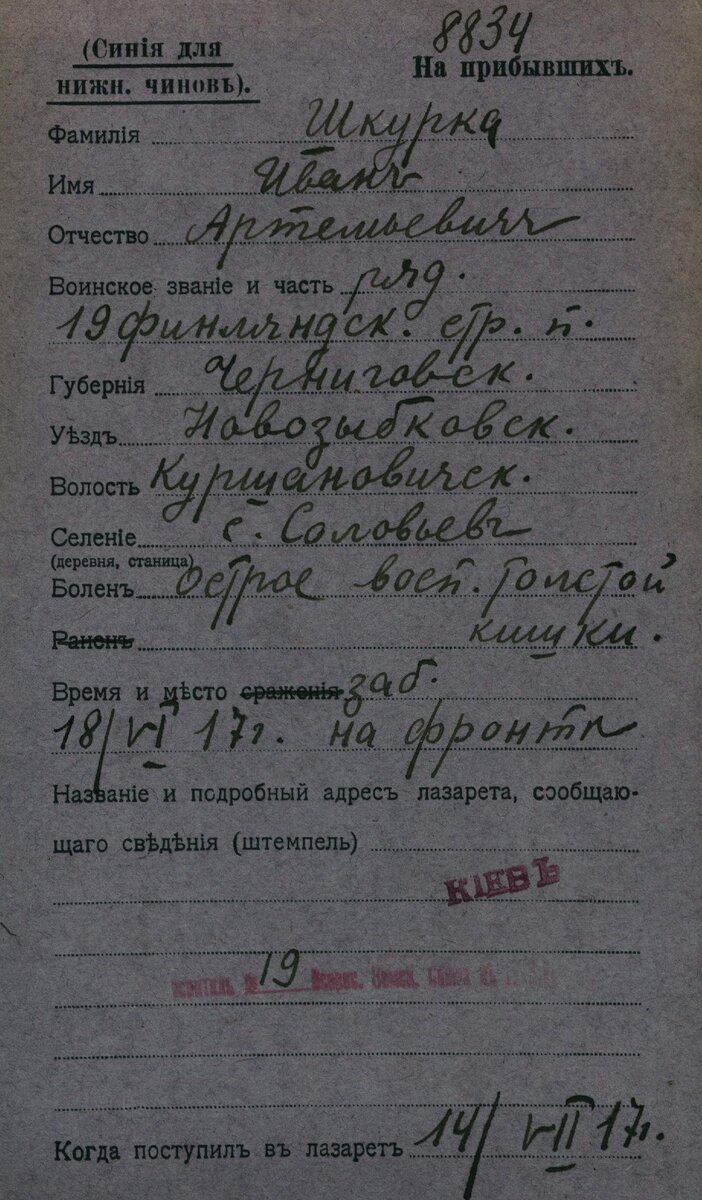 8834
(Синія для
нижн. чиновъ).
На прибывшихъ.
Фамилія Шкурка
Имя Иванъ
Отчество Артемьевичъ
Воинское званіе и часть ряд.
19 Финляндск. стр. п.
Губернія Черниговск.
Уѣздъ Новозыбковск.
Волость Курщановичск.
Селеніе с. Соловьевъ
(деревня, станица)
Боленъ острое восп. толстой
Раненъ кишки.
Время и мѣсто сраженія заб.
18/VI 17г. на фронтѣ
Названіе и подробный адресъ лазарета, сообщаю-
щаго свѣдѣнія (штемпель)
КІЕВЪ
19
Когда поступилъ въ лазаретъ 14/VII 17г.